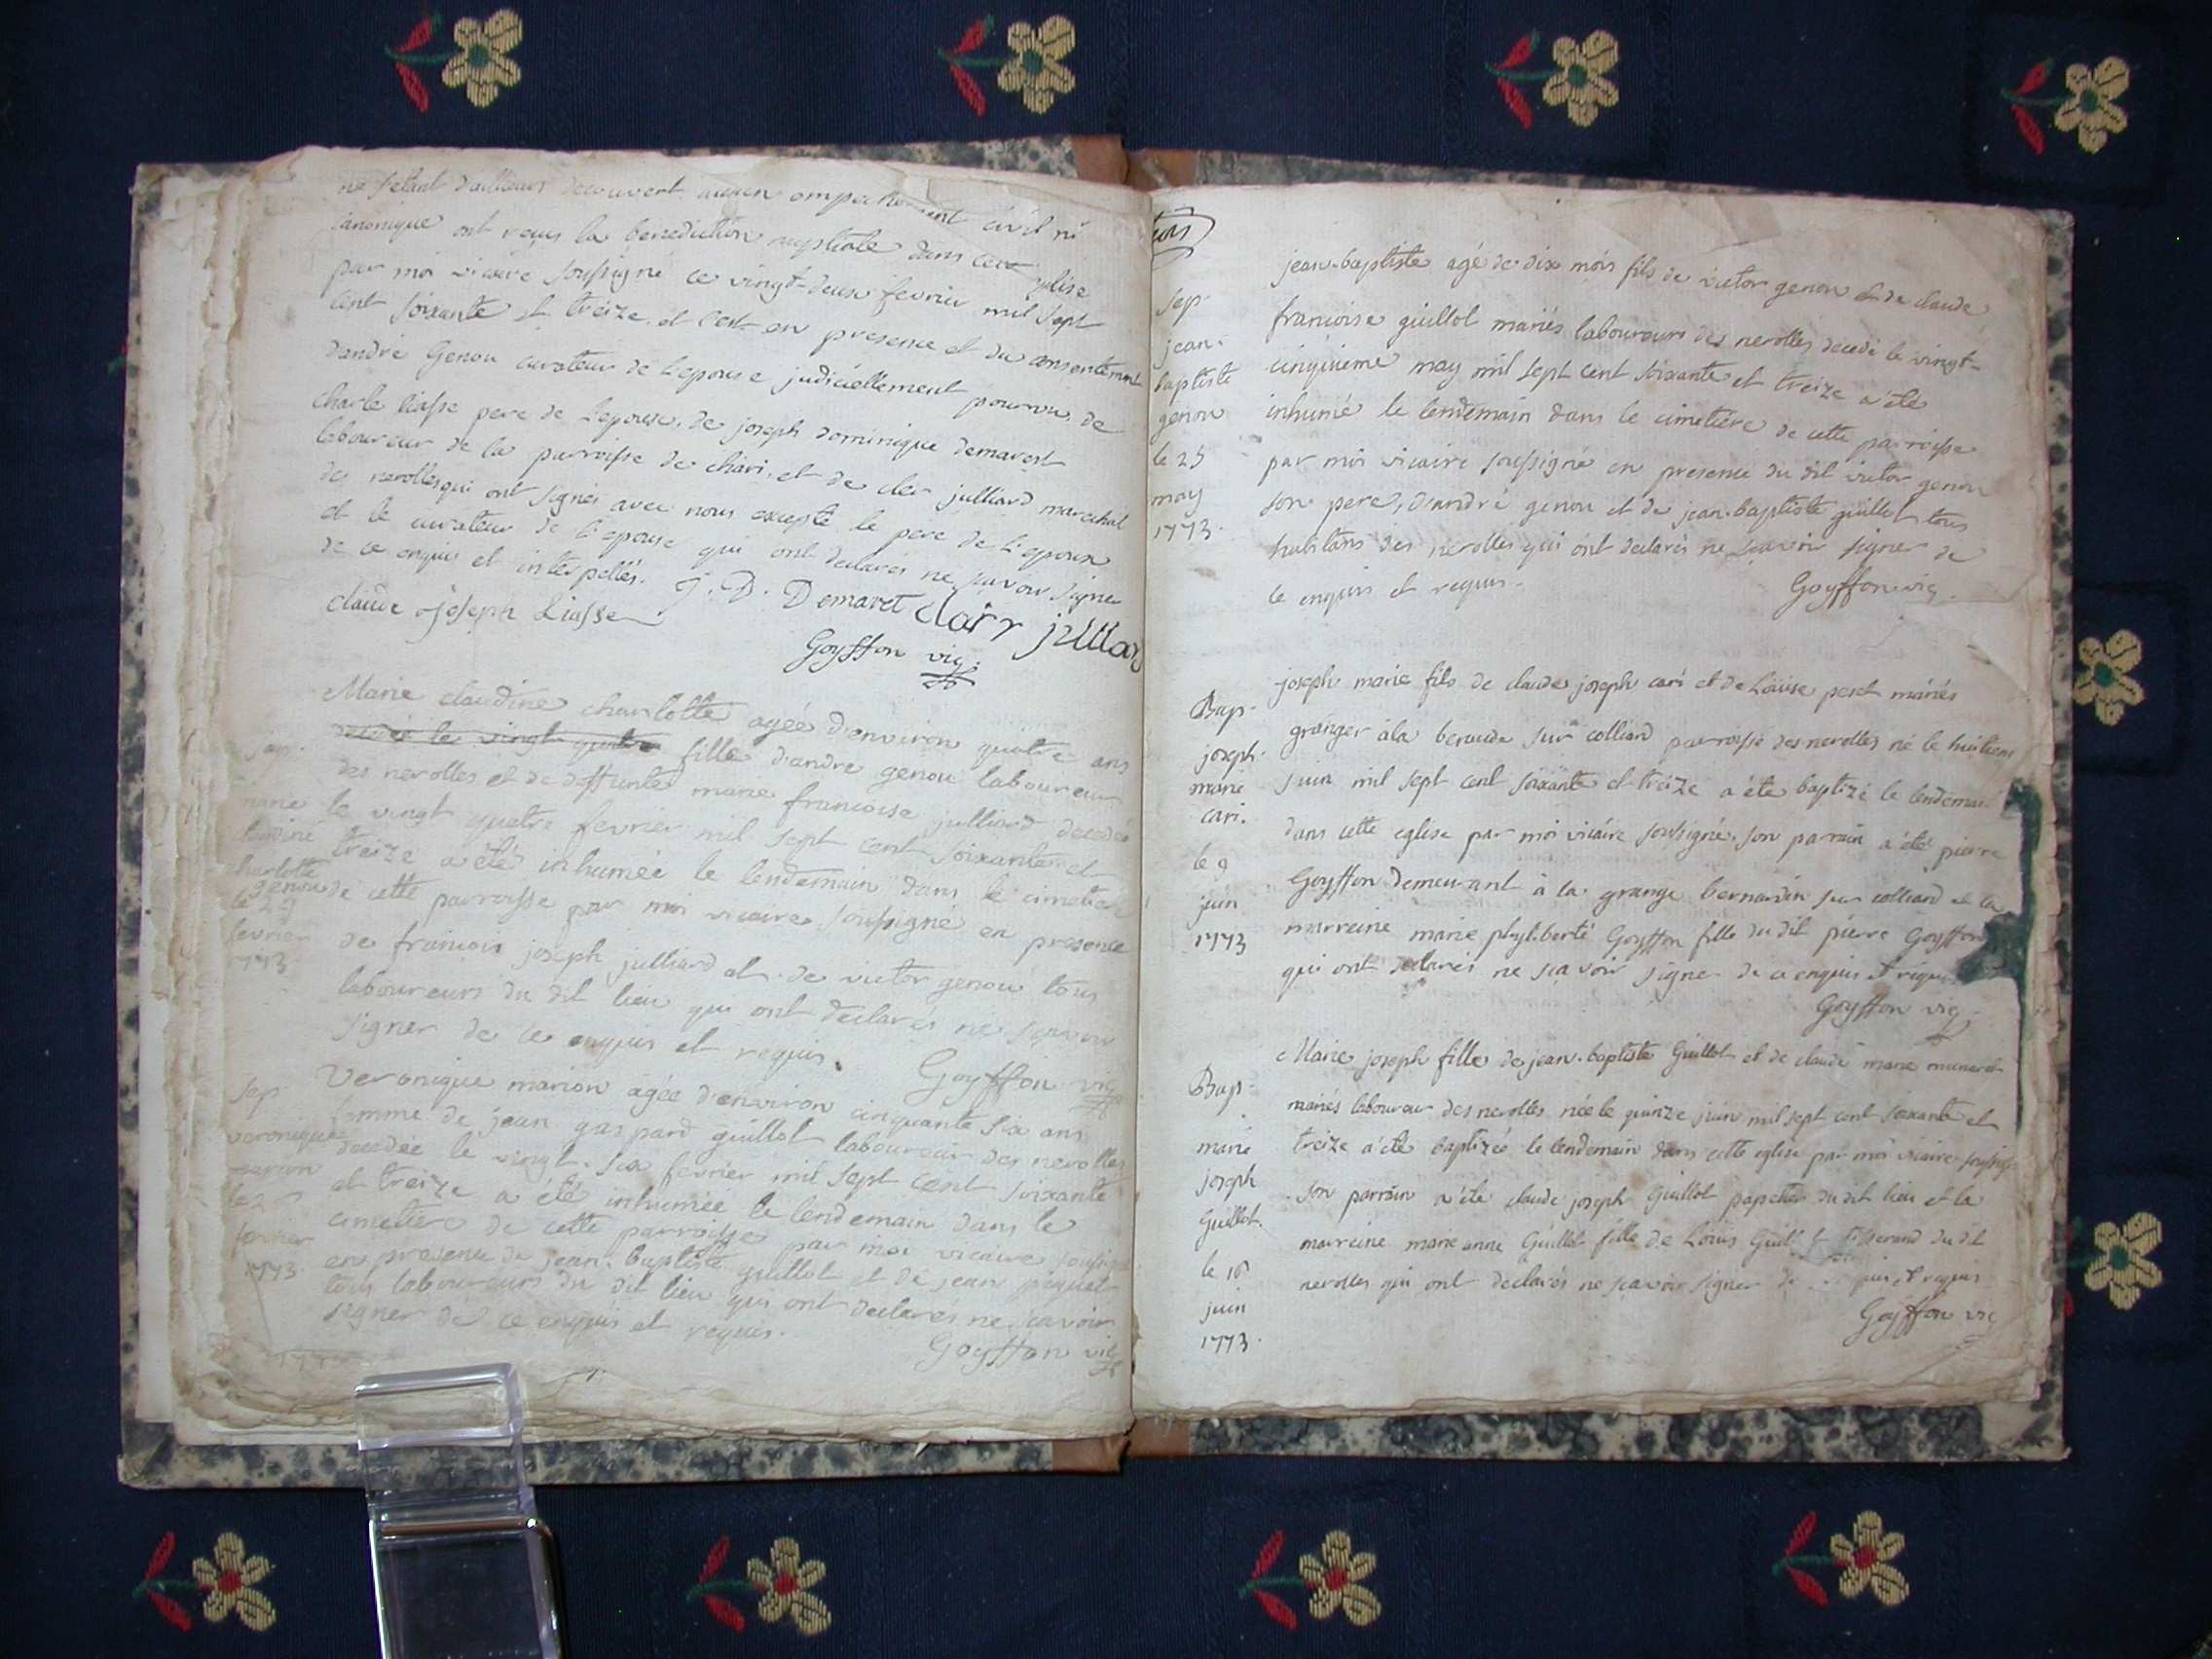 ne s'etant d'ailleurs decouvert aucun empechement civil ni
canonique ont reçus la benediction nuptiale dans cette eglise
par moi vicaire soussigné ce vingt-deux fevrier mil sept
cent soixante et treize et c'est en presence et du consentement
d'andré Genou curateur de l'epouse judiciellement pourvu, de
charle liasse pere de l'epoux, de joseph dominique demaret
laboureur de la parroisse de chari, et de cler julliard marechal
des nerolles qui ont signés avec nous excepté le pere de l'epoux
et le curateur de l'epouse qui ont declarés ne sçavoir signer
de ce enquis et interpellés. J. D. Demaret clair julliar
claude joseph Liasse
Goyffon vic.
Marie claudine charlotte agée d'environ quatre ans
decedée le vingt quatre fille d'andre genou laboureur
des nerolles et de deffunte marie francoise julliard decedée
le vingt quatre fevrier mil sept cent soixante et
treize a été inhumée le lendemain dans le cimetiere
de cette parroisse par moi vicaire soussigné en presence
de francois joseph julliard et de victor genou tous
laboureurs du dit lieu qui ont declarés ne sçavoir
signer de ce enquis et requis. Goyffon vic
Sep.
marie
claudine
charlotte
genou
le 25
fevrier
1773
Veronique marion agée d'environ cinquante six ans
femme de jean gaspard guillot laboureur des nerolles
decedée le vingt-six fevrier mil sept cent soixante
et treize a été inhumée le lendemain dans le
cimetiere de cette parroisse par moi vicaire soussigné
en presence de jean-baptiste guillot et de jean
tous laboureurs du dit lieu qui ont declarés ne sçavoir
signer de ce enquis et requis.
Goyffon vic
Sep
veronique
marion
fevrier
1773
Sep.
jean-
baptiste
genou
le 25
may
1773.
jean-baptiste agé de dix mois fils de victor genou et de claude
francoise guillot mariés laboureurs des nerolles decedé le vingt-
cinquieme may mil sept cent soixante et treize a été
inhumé le lendemain dans le cimetiere de cette parroisse
par moi vicaire soussigné en presence du dit victor genou
son pere, d'andré genou et de jean-baptiste guillot tous
habitans des nerolles qui ont declarés ne sçavoir signer de
ce enquis et requis.
Goyffon vic.
Bap-
joseph-
marie
cari.
le 9
juin
1773
joseph marie fils de claude joseph cari et de Louise mariés
granger a la beraude sur colliard parroisse des nerolles né le huitieme
juin mil sept cent soixante et treize a été baptizé le lendemain
dans cette eglise par moi vicaire soussigné. son parrain a été pierre
Goyffon demeurant à la grange bernardin sur colliard et la
marreine marie phyliberte Goyffon fille du dit pierre Goyffon
qui ont declarés ne sçavoir signer de ce enquis et requis
Goyffon vic.
Bap-
marie
joseph
Guillot.
le 16
juin
1773.
Marie joseph fille de jean-baptiste Guillot et de claude marie
mariés laboureur des nerolles née le quinze juin mil sept cent soixante et
treize a été baptizée le lendemain dans cette eglise par moi vicaire soussigné
. son parrain a été claude joseph Guillot papetier du dit lieu et la
marreine marie anne Guillot fille de Louis Guillot tisserand du dit
nerolles qui ont declarés ne sçavoir signer de requis
Goyffon vic